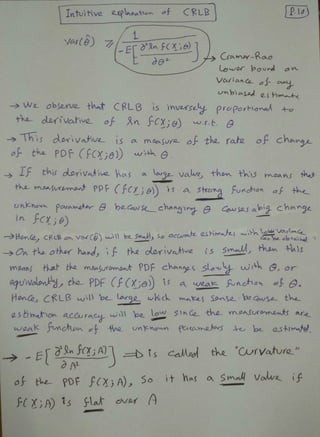 Intuitive explanation of CRLB
P.10
var(θ̂) ≥ 1 / -E[∂² ln f(X;θ) / ∂θ²]
→ Cramer-Rao
Lower bound on
Variance of any
unbiased estimate
→ We observe that CRLB is inversely proportional to
the derivative of ln f(X;θ) w.r.t. θ
→ This derivative is a measure of the rate of change
of the PDF (f(X;θ)) with θ.
→ If this derivative has a large value, then this means that
the measurement PDF (f(X;θ)) is a strong function of the
unknown parameter θ because changing θ causes a big change
in f(X;θ)
→ Hence, CRLB on var(θ̂) will be small, so accurate estimates with low variance
can be obtained
→ On the other hand, if the derivative is small, then this
means that the measurement PDF changes slowly with θ. or
equivalently, the PDF (f(X;θ)) is a weak function of θ.
Hence, CRLB will be large which makes sense because the
estimation accuracy will be low since the measurements are
weak function of the unknown parameters to be estimated.
→ -E[∂² ln f(X;A) / ∂A²] ⇒ is called the "Curvature"
of the PDF f(X;A), so it has a small value if
f(X;A) is flat over A